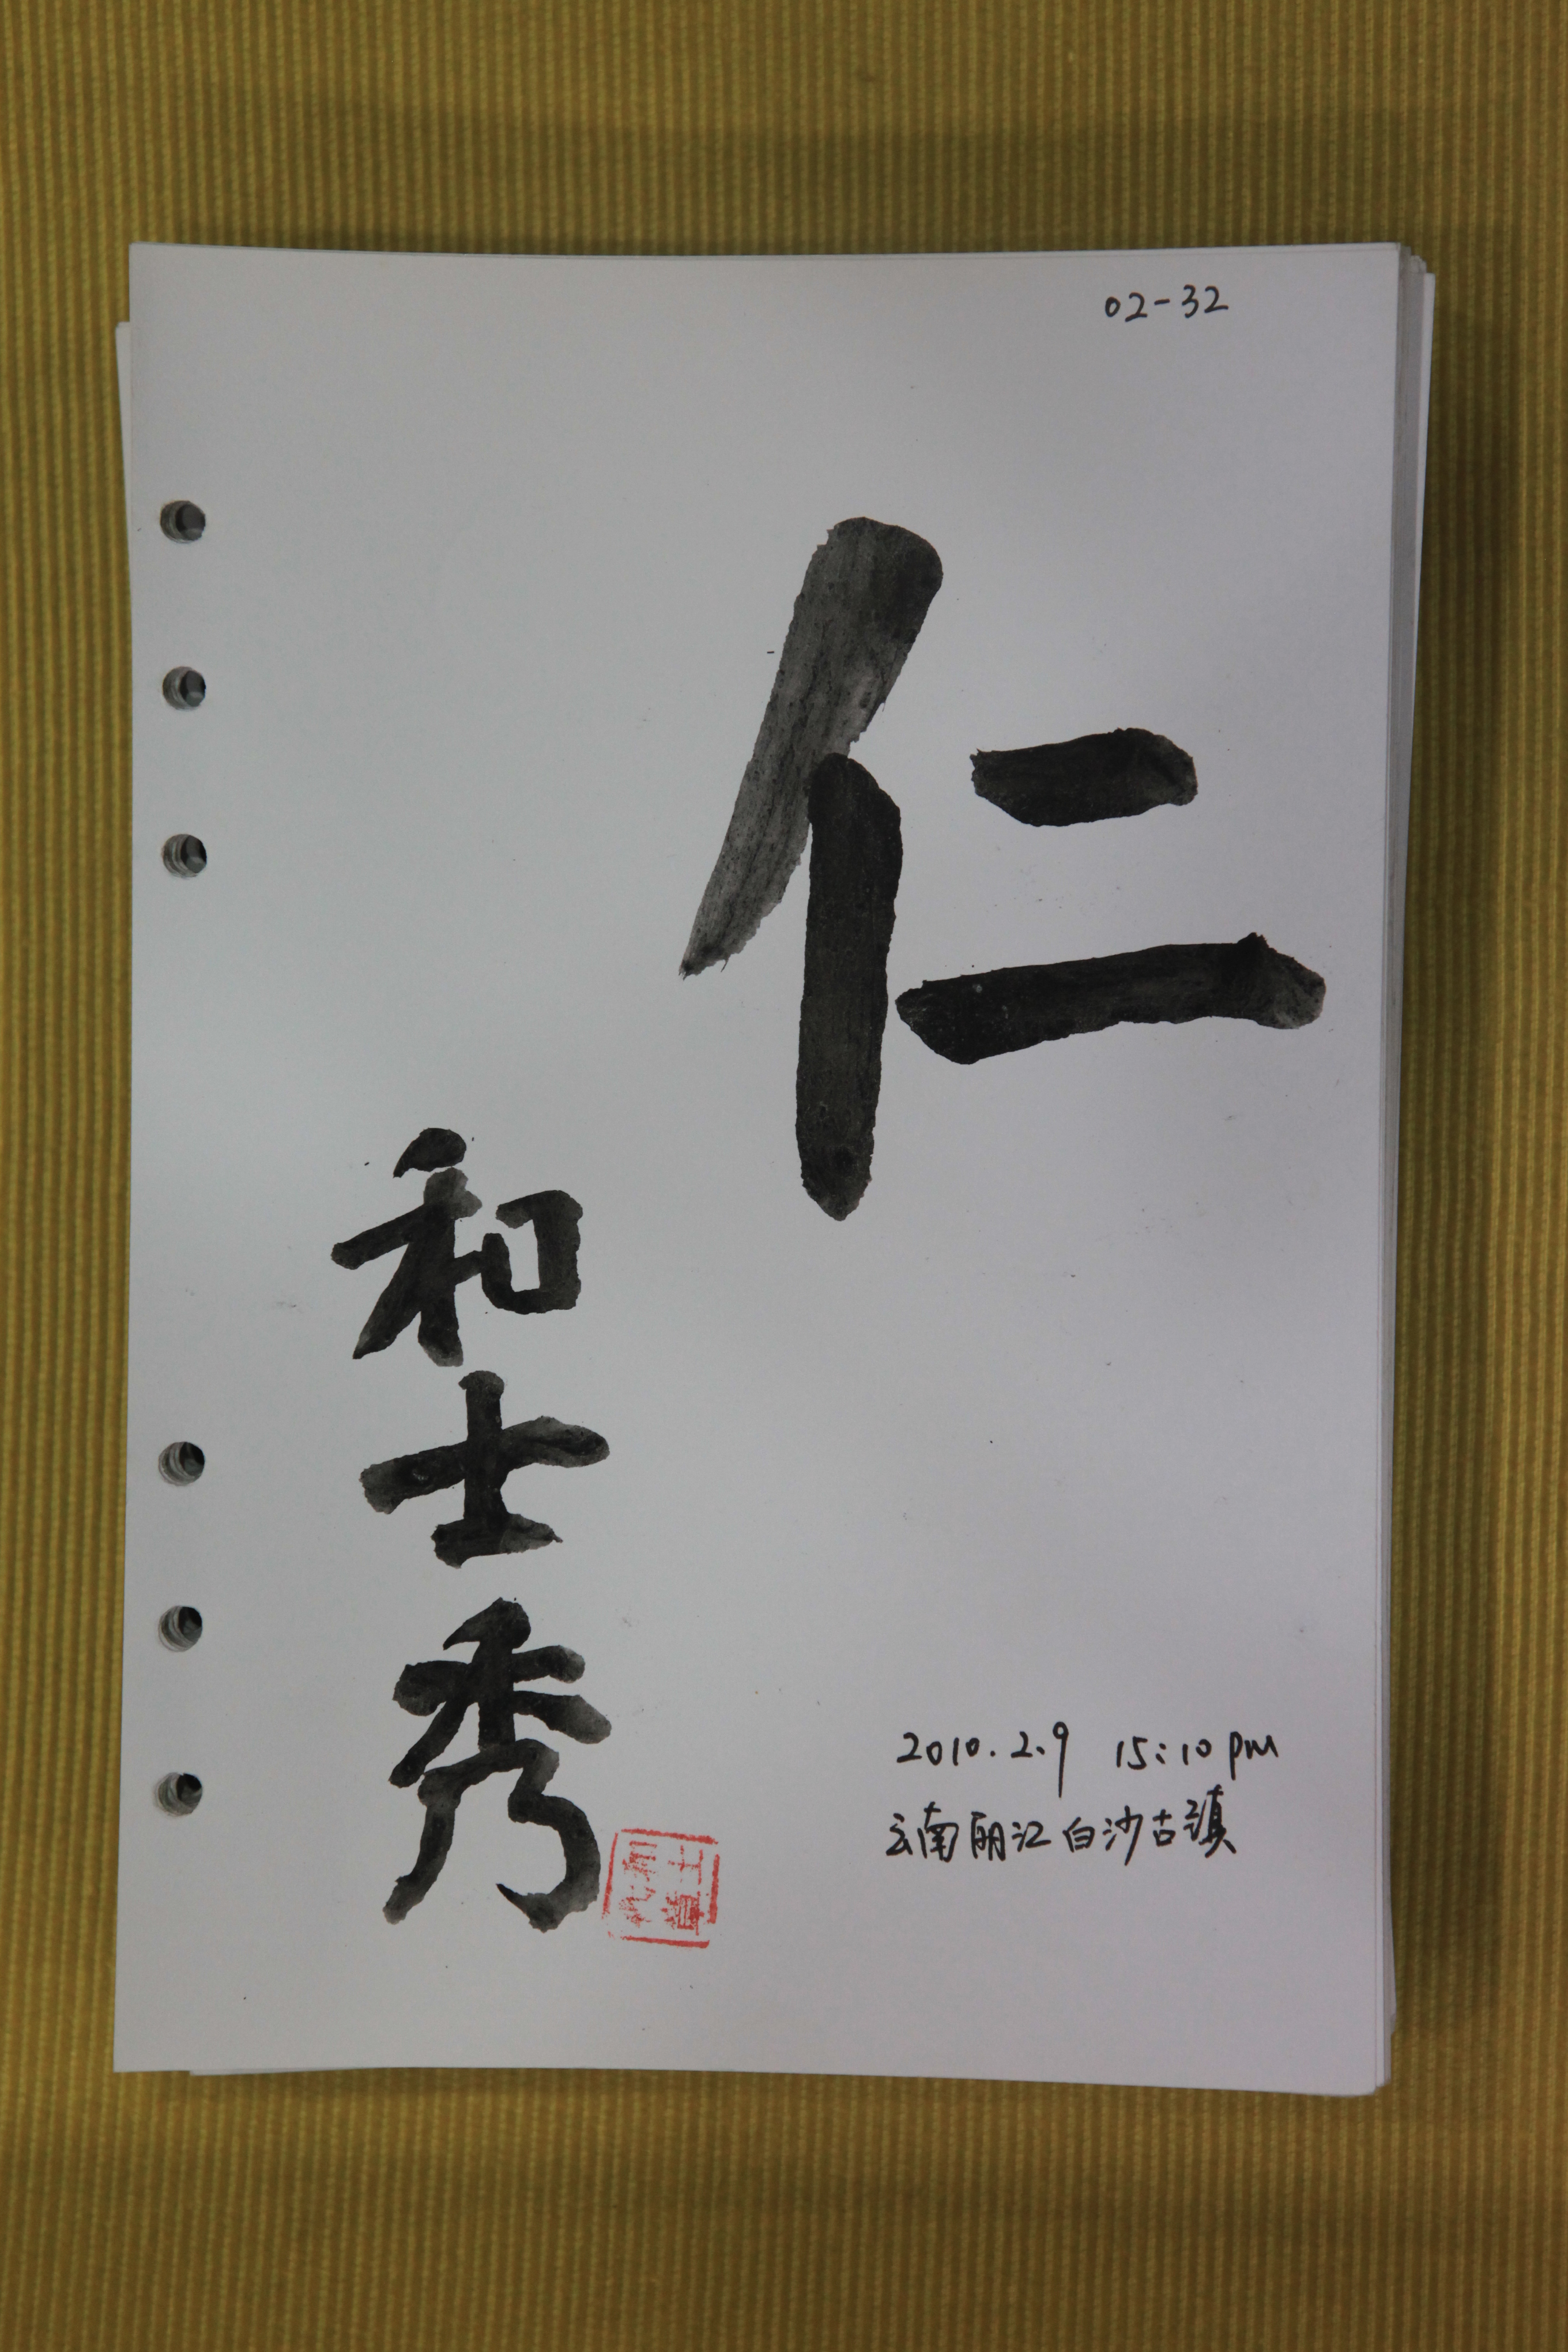 02-32
仁
和士秀
2010.2.9 15:10 pm
云南丽江白沙古镇